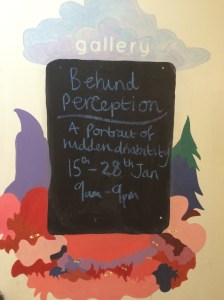 gallery
Behind
Perception
A portrait of
hidden disability
15th - 28th Jan
9am - 9pm